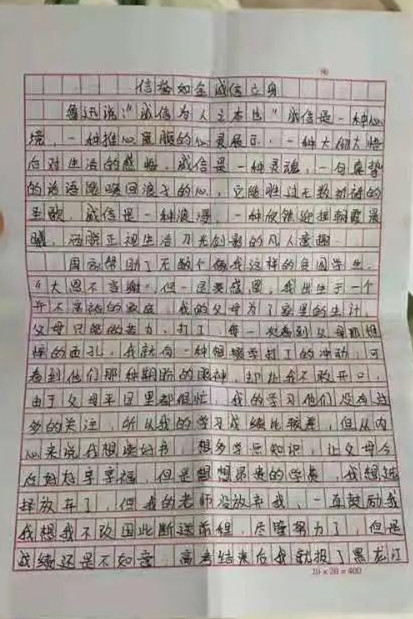 信格如金 诚信立身
鲁迅说:"诚信为人之本也"诚信是一种心
境,一种推心置腹的心灵展示,一种大彻大悟
后对生活的感悟,诚信是一种灵魂,一句真挚
的话语能唤回浪子的心,它能胜过无数动听的
圣歌,诚信是一种浪漫,一种欣然迎接朝霞晨
曦,洒脱正视生活刀光剑影的凡人意趣
国家帮助了无数个像我这样的贫困学生,
"大恩不言谢"但一定要感恩,我出生于一个
并不富裕的家庭,我的父母为了家里的生计,
父母只能的去力,打工,每一次看到父母那憔
悴的面孔,我就有一种想辍学打工的冲动,可
看到他们那种期盼的眼神,却让我不敢开口,
由于父母平日里都很忙,我的学习他们没有过
多的关注,所以我的学习成绩比较差,但从内
心来说我想读好书,想多学点知识,让父母今
后好好享享福,但是想想昂贵的学费,我想选
择放弃了,但我的老师没放弃我,一直鼓励我
我想我不敢因此断送前程,尽管努力了,但是
成绩还是不如意,高考结束后我就报了黑龙江
20×20=400